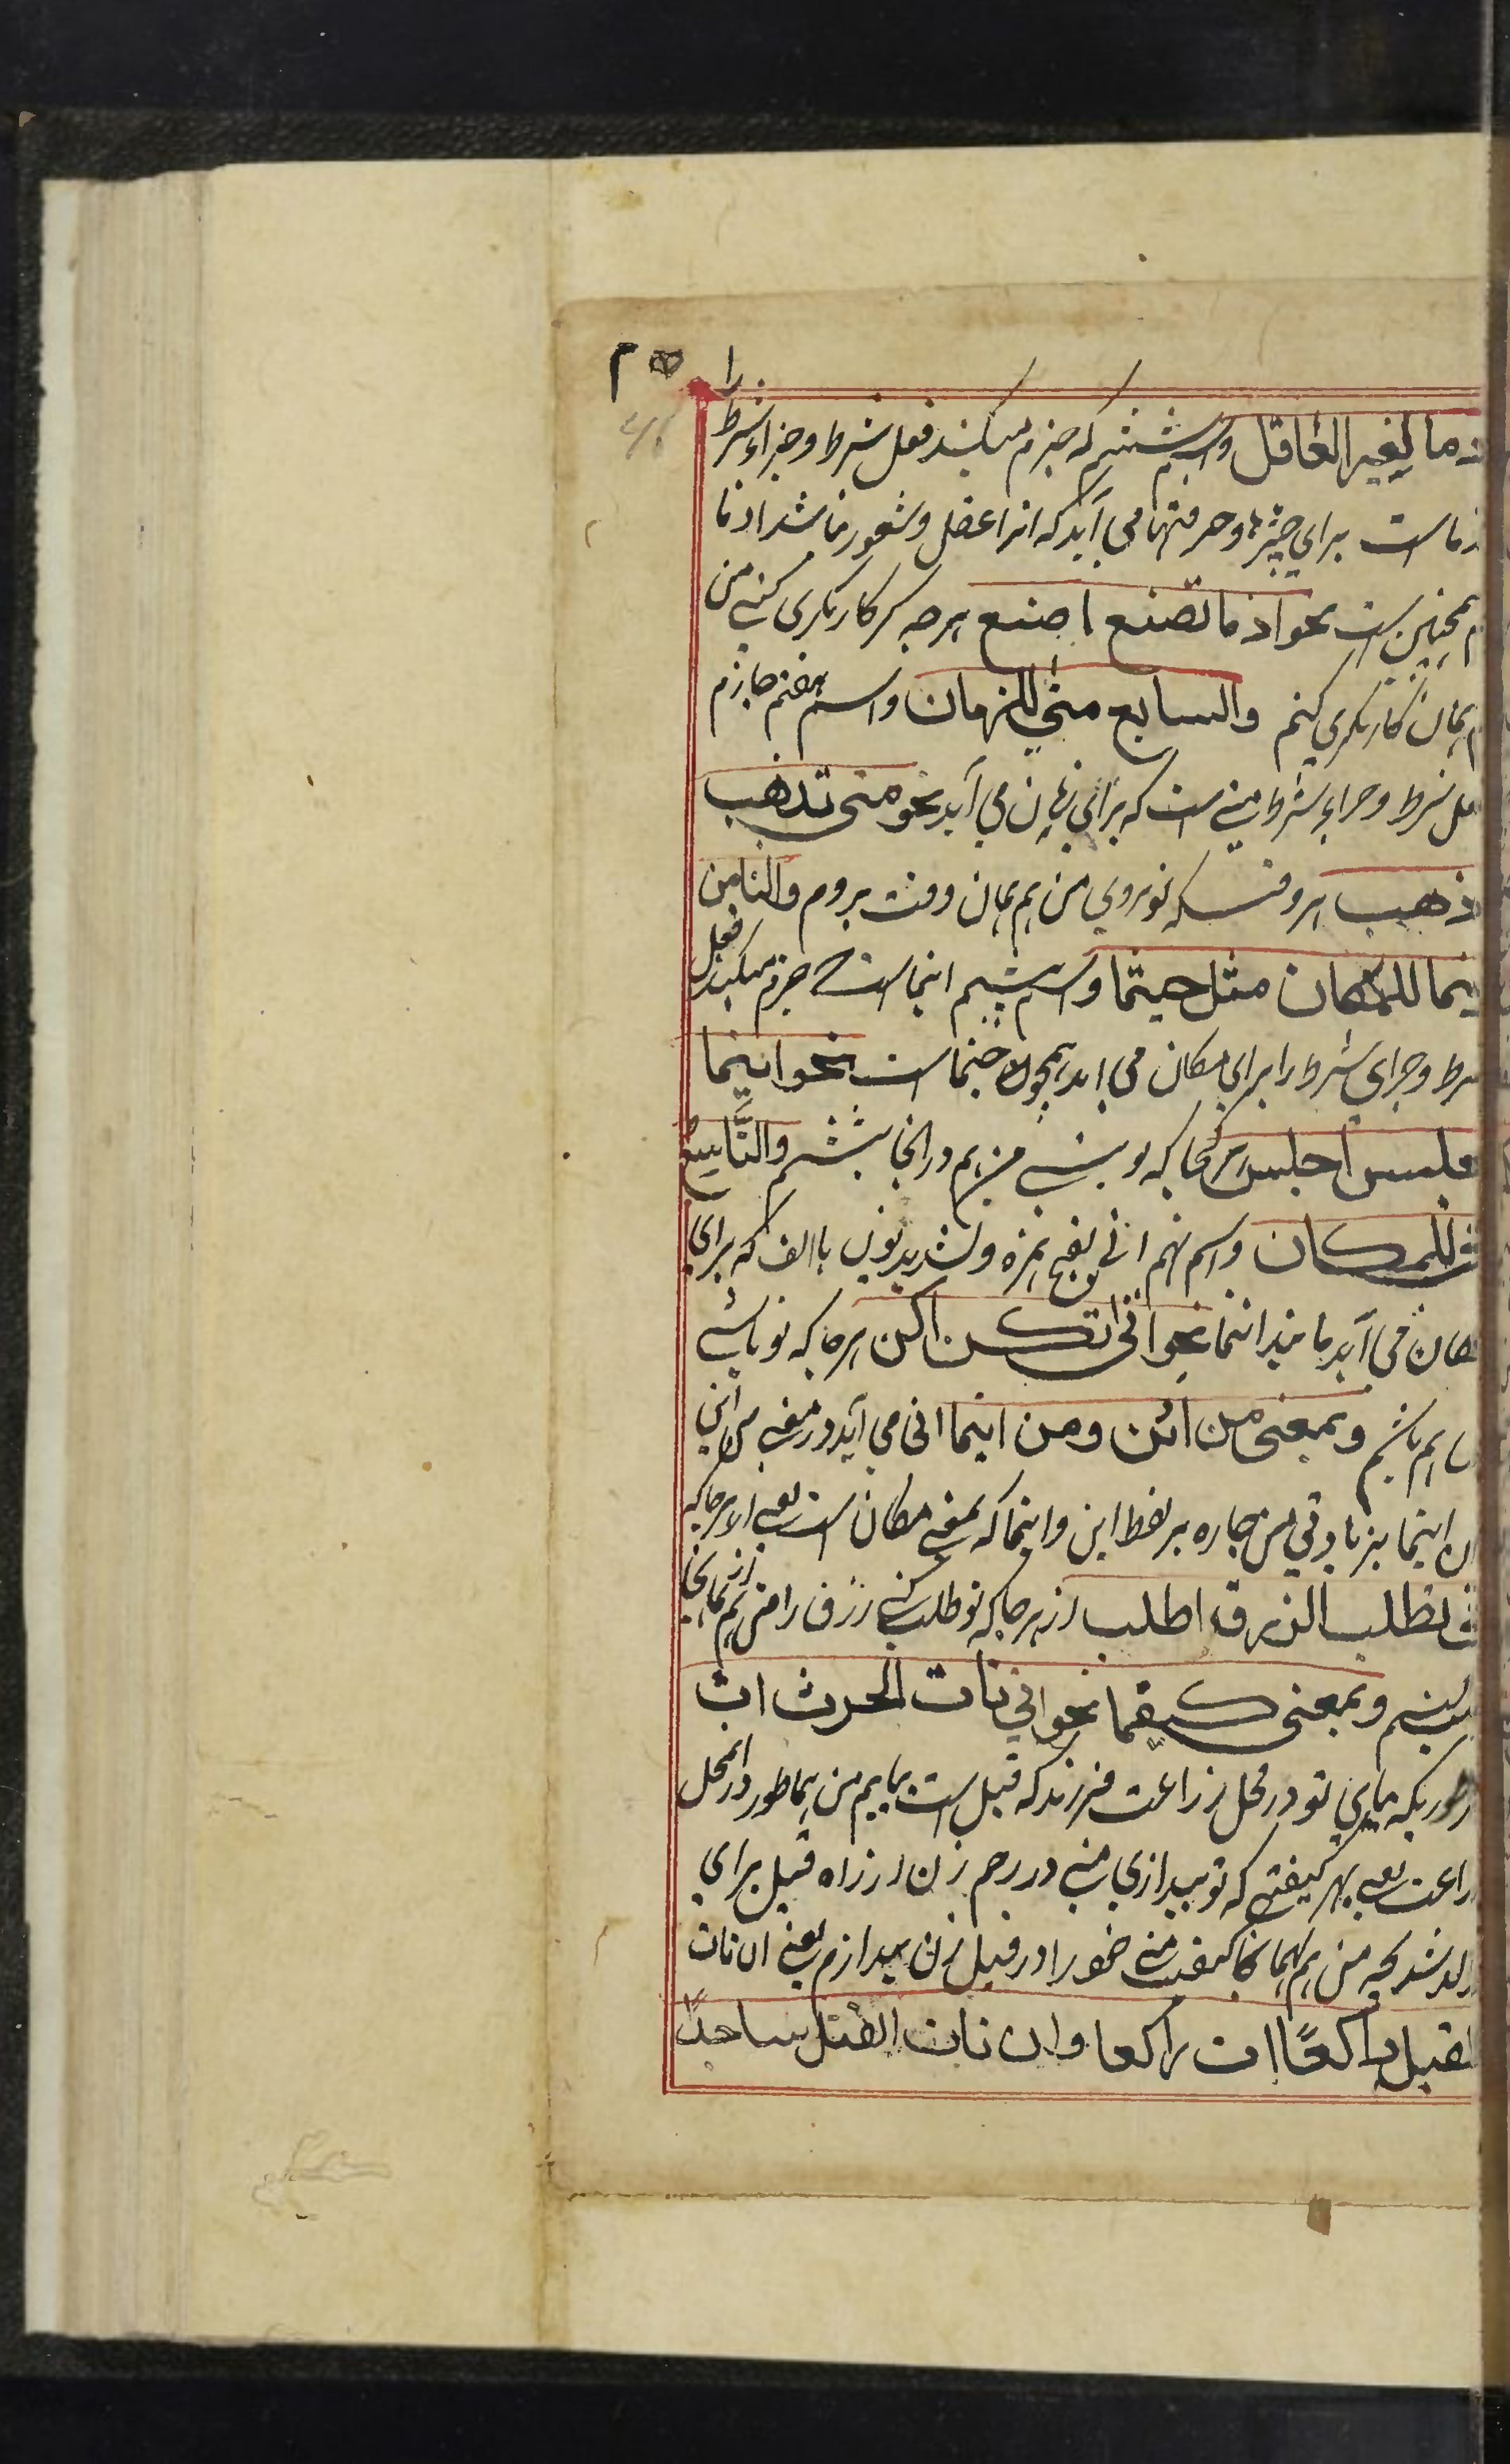 ذما لغیر العاقل واسم ششم که جزم میکند فعل شرط وجزاء شرط را
ذماست برای چیزها وحرفتها می آید که انرا عقل وشعور نباشد اذما
همچنین ست نحو اذ ما تصنع اصنع هرچه کر کاریکری کنی من
هم همان کاریکری کنم والسابع متی للزمان واسم هفتم جازم
فعل شرط وجزاء شرط متی ست که برای زمان می آید نحو متی تذهب
اذهب هر وقتیکه تو بروی من هم همان وقت بروم والثامن
اینما للمکان مثل حیثما واسم هشتم اینماست جزم میکند فعل
شرط وجزای شرط را برای مکان می اید همچون حیثماست نحو اینما
تجلس اجلس هر کجا که تو بنشینی من هم در انجا بنشینم والتّاسع
انی للمکان واسم نهم انی بفتح همزه وتشدید نون با الف که برای
مکان می آید مانند اینما نحو انی تکن اکن هر جا که تو باشی
من هم باشم وبمعنی من این ومن اینما انی می آید در معنی من این
من اینما بزیادتی من جاره بر لفظ این واینما که بمعنی مکان ست یعنی از هر جا که
انی تطلب الرزق اطلب از هر جا که تو طلب کنی رزق را من هم از همانجا
طلب کنم وبمعنی کیفما نحو انی تات الحرث ات
هر طوریکه بیایی تو در محل زراعت فرزند که قبل ست بیایم من هماطور در انمحل
زراعت یعنی بهر کیفیتی که تو بیندازی منی در رحم زن از راه قبل برای
ولد شدن بچه من هم بهمان کیفیت منی خود را در قبل زن بیندازم یعنی ان تات
القبل راکعًا ات راکعا وان تات القبل ساجدًا